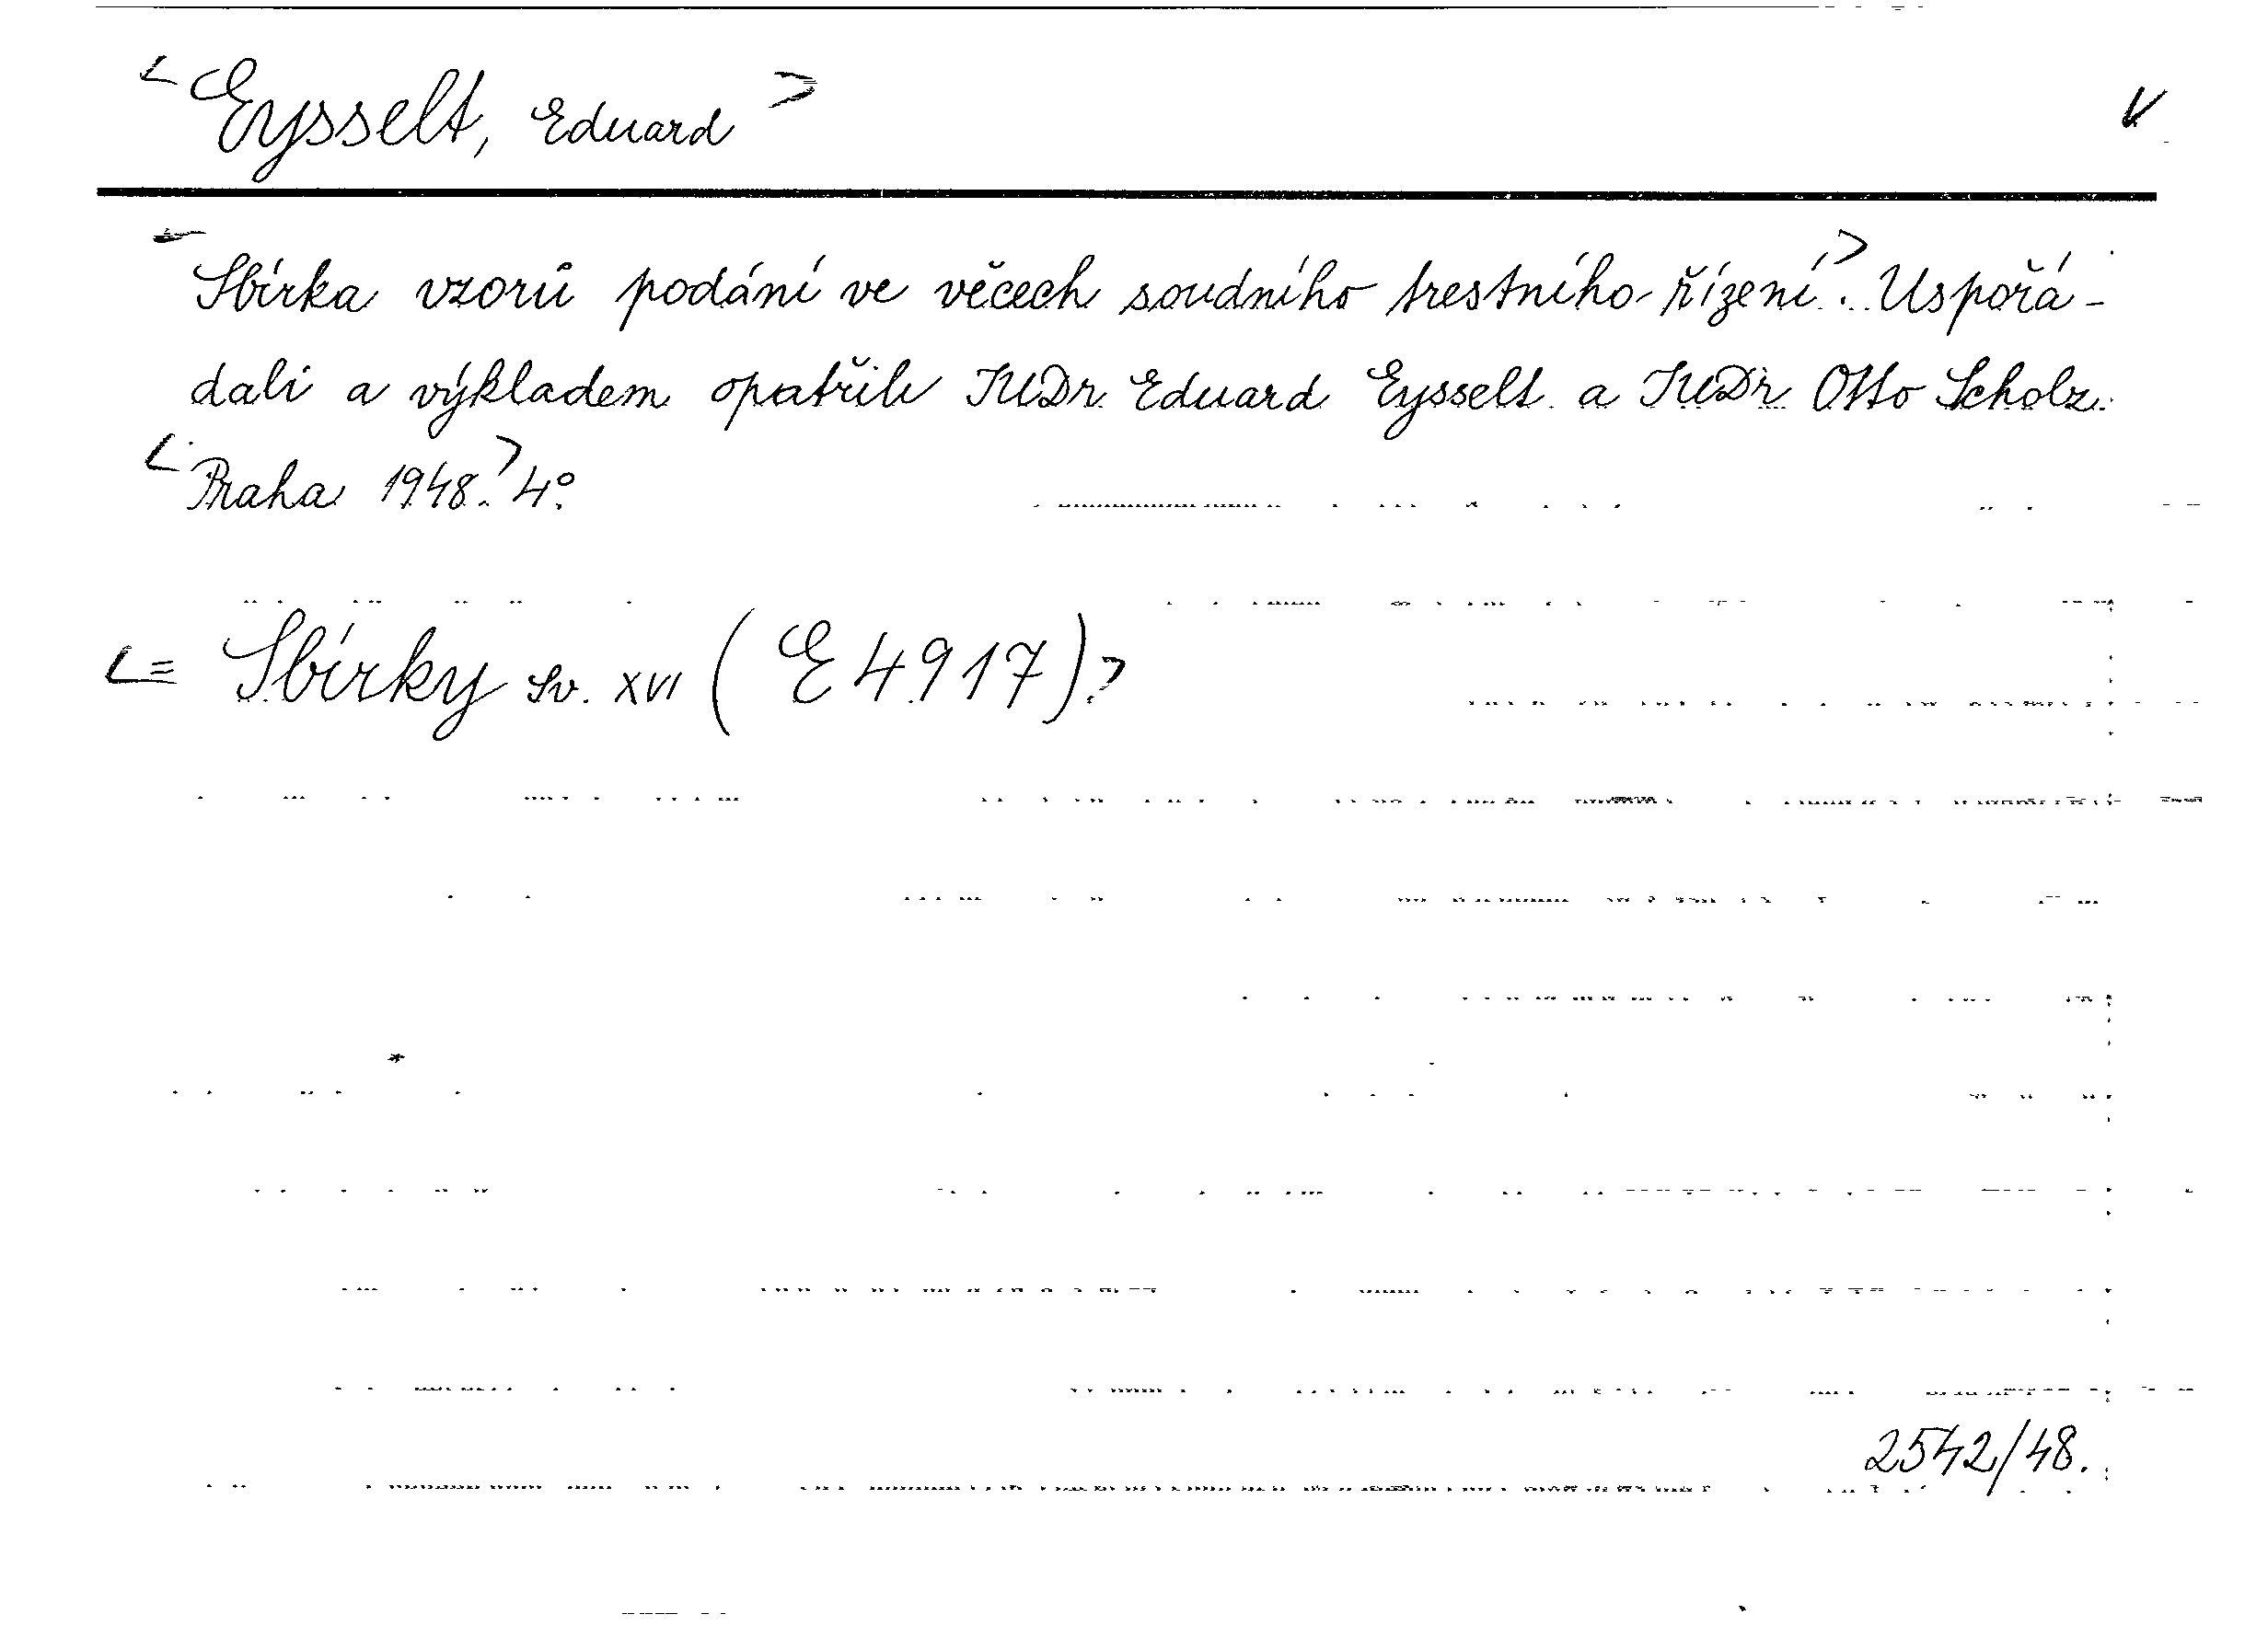 <Eysselt, Eduard> V
<Sbírka vzorů podání ve věcech soudního trestního řízení>. Uspořá-
dali a výkladem opatřili JUDr. Eduard Eysselt a JUDr Otto Scholz.
<Praha 1948.> 4°.
<= Sbírky sv. XVI (E 4917).>
2542/48.